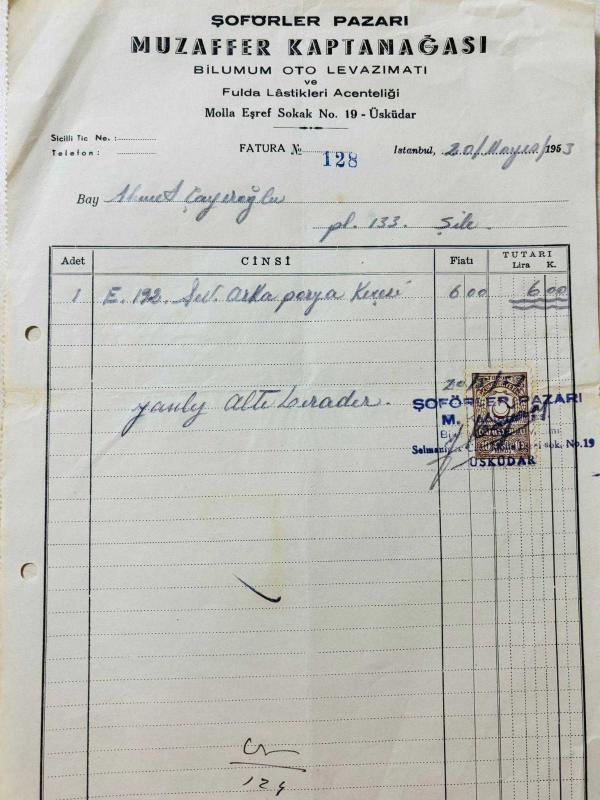 ŞOFÖRLER PAZARI
MUZAFFER KAPTANAĞASI
BİLUMUM OTO LEVAZIMATI
ve
Fulda Lâstikleri Acenteliği
Molla Eşref Sokak No. 19 - Üsküdar
Sicilli Tic No. :
Telefon :
FATURA № 128
Istanbul, 20/Mayıs/1953
Bay Ahmet Çayıroğlu
pl. 133. Şile.
Adet CİNSİ Fiatı TUTARI
Lira K.
1 E. 192. Şev. arka porya Keçesi 6 00 6 00
yanlız altı liradır.
ŞOFÖRLER PAZARI
M.
Sok. No. 19
ÜSKÜDAR
124